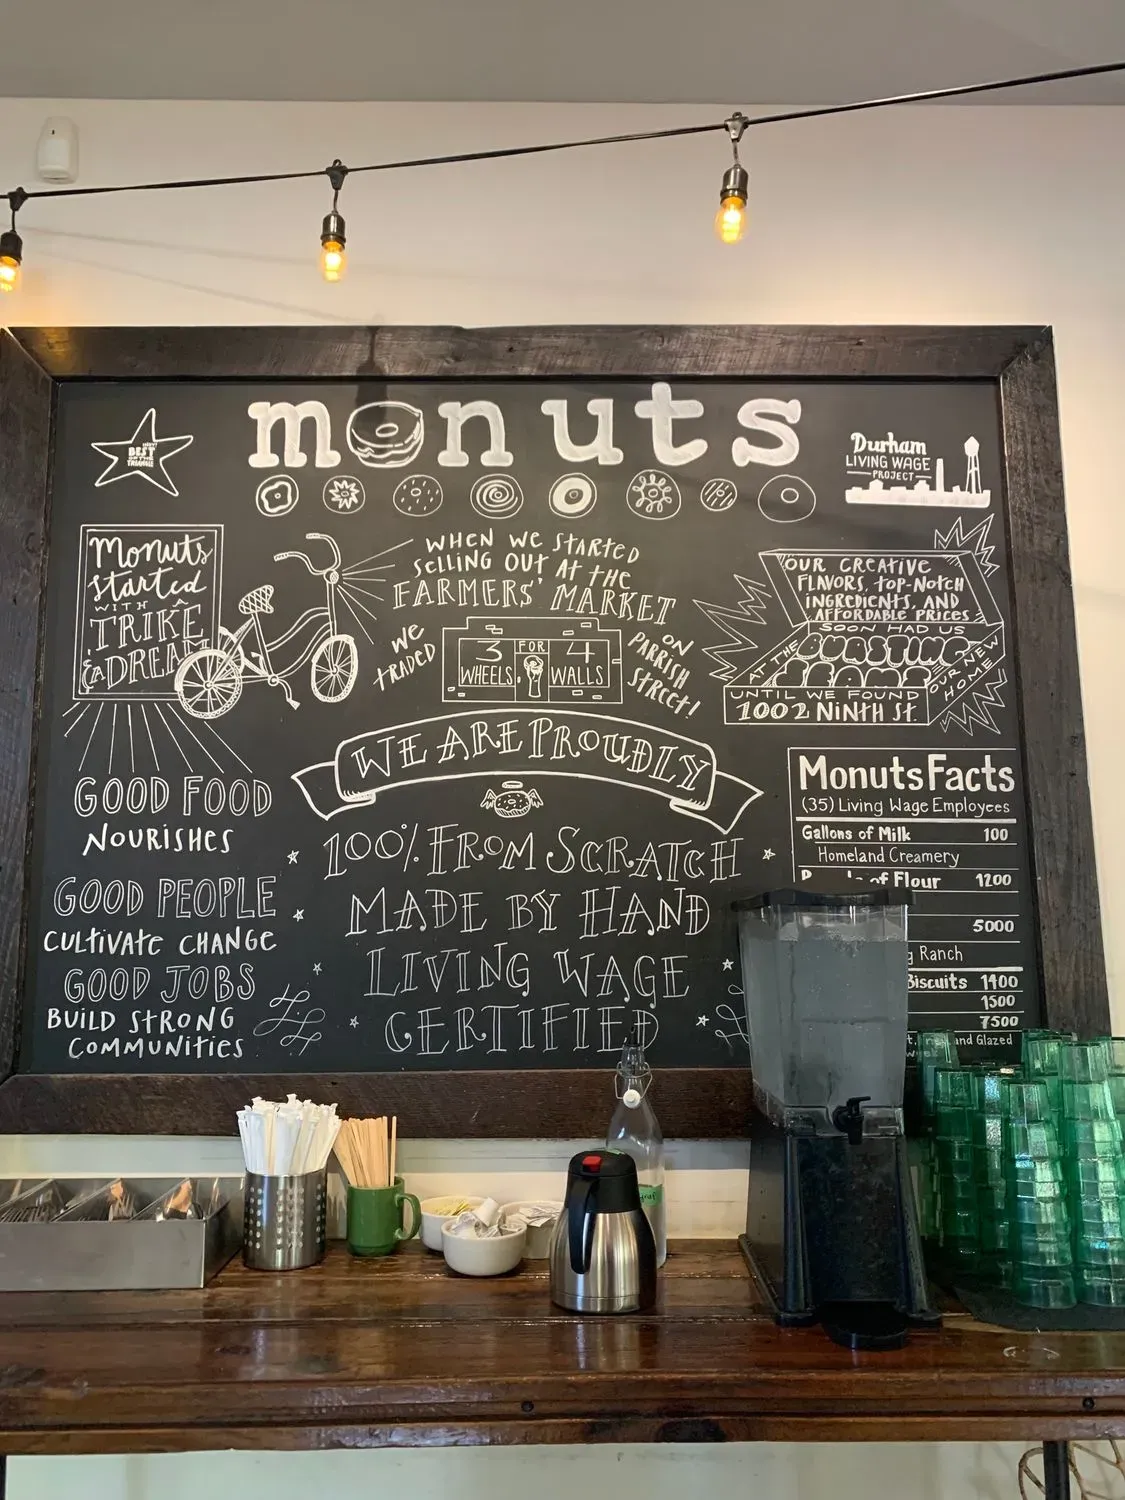 monuts
BEST
OF THE
TRIANGLE
Durham
LIVING WAGE
PROJECT
Monuts
started
WITH A
TRIKE
& A DREAM
WHEN WE STARTED
SELLING OUT AT THE
FARMERS' MARKET
WE
TRADED
3 FOR 4
WHEELS WALLS
ON
PARRISH
STREET!
OUR CREATIVE
FLAVORS, TOP-NOTCH
INGREDIENTS, AND
AFFORDABLE PRICES
SOON HAD US
BURSTING
AT THE
SEAMS
UNTIL WE FOUND
OUR NEW
HOME
1002 NINTH St.
WE ARE PROUDLY
100% FROM SCRATCH
MADE BY HAND
LIVING WAGE
CERTIFIED
GOOD FOOD
NOURISHES
GOOD PEOPLE
CULTIVATE CHANGE
GOOD JOBS
BUILD STRONG
COMMUNITIES
Monuts Facts
(35) Living Wage Employees
Gallons of Milk 100
Homeland Creamery
of Flour 1200
5000
Ranch
Biscuits 1400
1500
7500
and Glazed